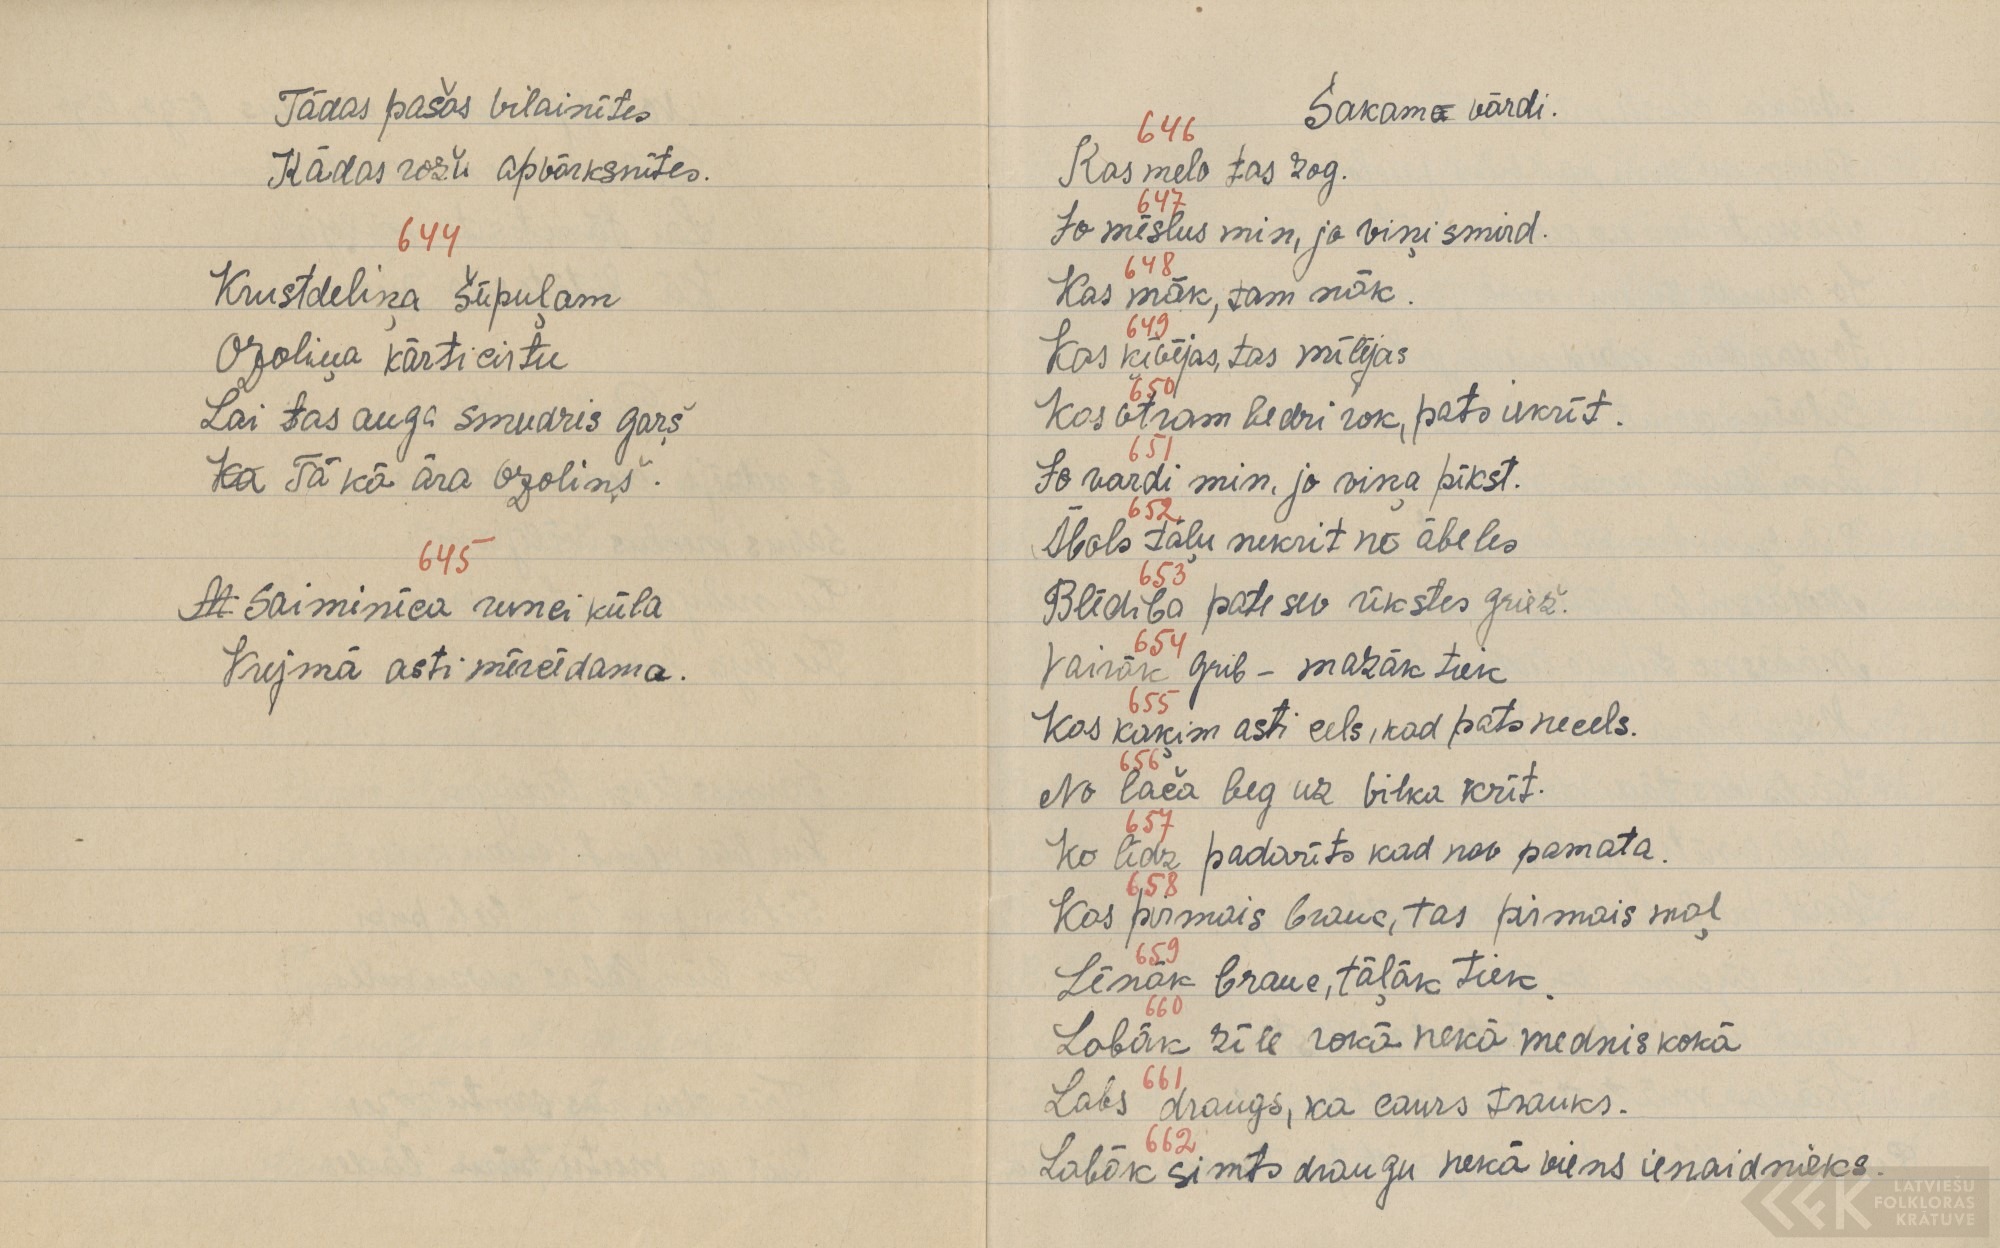 Tādas pašas vilainītes
Kādas rožu apvārksnītes.
644
Krustdeliņa šūpuļam
Ozoliņa kārti cirtu
Lai tas auga smudris gaŗš
Ka Tā kā āra ozoliņš.
645
At Saiminīca runci kūla
Krejmā asti mērcēdama.
Sakama vārdi.
646
Kas melo tas zog.
647
Jo mēslus min, jo viņi smird.
648
Kas māk, tam nāk.
649
Kas ķivējas, tas mīlējas
650
Kas otram bedri rok, pats iekrīt.
651
Jo vardi min, jo viņa pīkst.
652
Ābols tāļu nekrit no ābeles
653
Blēdiba pate sev rīkstes griež.
654
Vairāk grib - mazāk tiek
655
Kas kaķim asti cels, kad pats necels.
656
No lāča beg uz vilka krīt.
657
Ko līdz padarīts kad nav pamata.
658
Kas pirmais brauc, tas pirmais maļ
659
Lēnāk brauc, tāļāk tiek.
660
Labāk zīle rokā nekā mednis kokā
661
Labs draugs, ka caurs trauks.
662
Labāk simts draugu nekā viens ienaidnieks.
LATVIEŠU
FOLKLORAS
KRĀTUVE